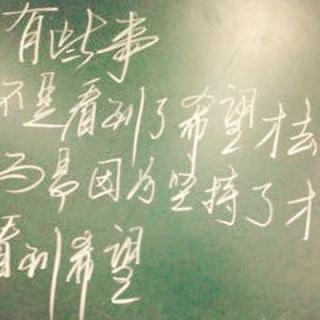 有些事
不是看到了希望才去
而是因为坚持了才
看到希望